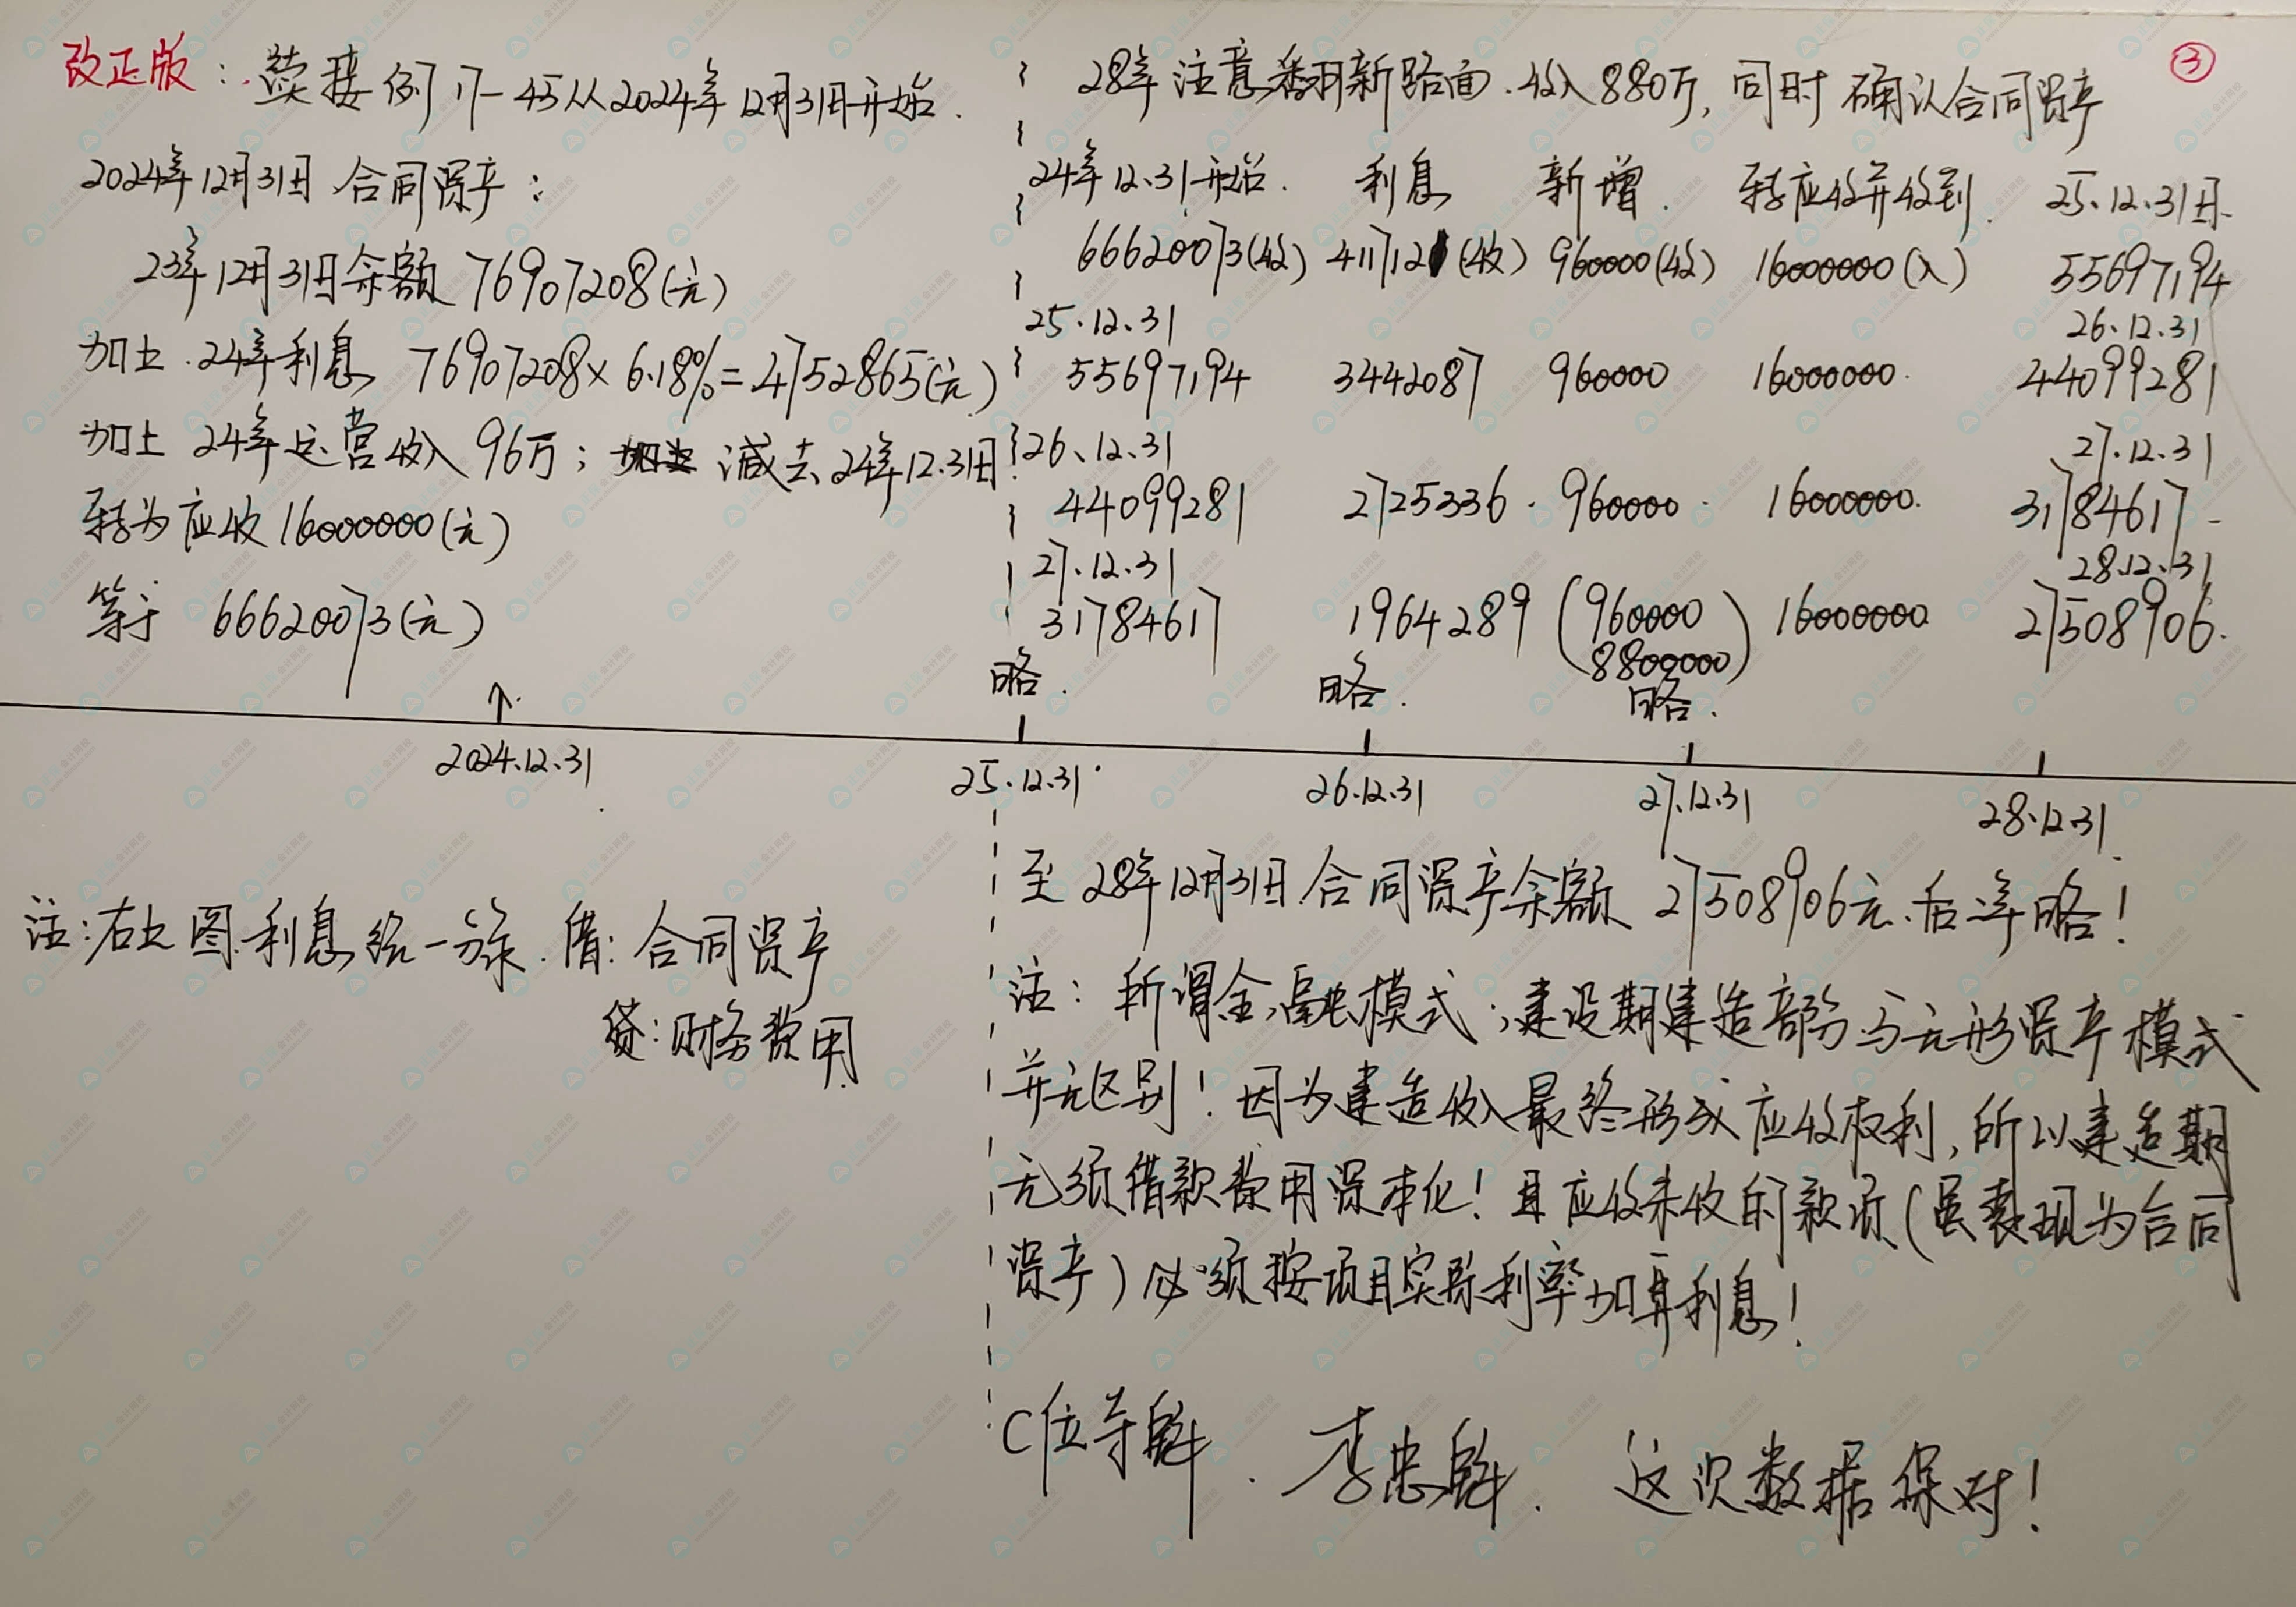 改正版：续接例17-45从2024年12月31日开始.
2024年12月31日合同资产：
23年12月31日余额76907208(元)
加上.24年利息 76907208×6.18%=4752865(元)
加上24年运营收入96万；减去24年12.31日
转为应收16000000(元)
等于 66620073(元)
③
28年注意翻新路面.收入880万,同时确认合同资产
24年12.31开始. 利息 新增. 转应收并收到. 25.12.31日
66620073(收) 4117121(收) 960000(收) 16000000(入) 55697194
25.12.31 26.12.31
55697194 3442087 960000 16000000. 44099281
26.12.31 27.12.31
44099281 2725336. 960000. 16000000. 31784617
27.12.31 28.12.31
31784617 1964289 (960000 16000000 27508906.
8800000)
略. 略. 略.
2024.12.31 25.12.31 26.12.31 27.12.31 28.12.31
注:右上图.利息统一分录.借:合同资产
贷:财务费用
至28年12月31日.合同资产余额 27508906元.后年略!
注：所谓金融模式;建设期建造部分与无形资产模式
并无区别!因为建造收入最终形成应收权利,所以建造期
无须借款费用资本化!且应收未收的款项(虽表现为合同
资产)必须按项目实际利率加算利息!
C位夺魁. 李忠魁. 这次数据保对!
会计网校